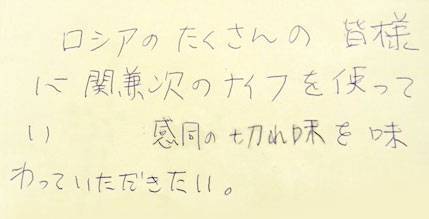 ロシアのたくさんの皆様
に関兼次のナイフを使って
い 感同の切れ味を味
わっていただきたい。